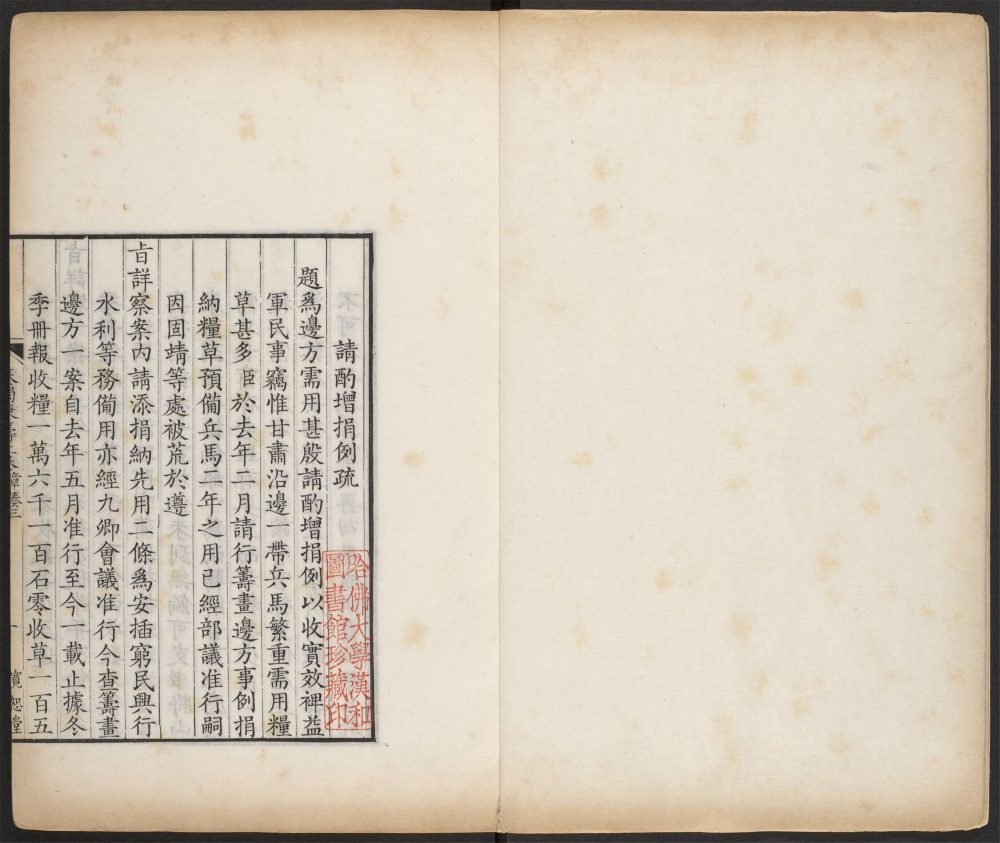 請酌增捐例疏
題爲邊方需用甚殷請酌增捐例以收實效裨益
軍民事竊惟甘肅沿邊一帶兵馬繁重需用糧
草甚多臣於去年二月請行籌畫邊方事例捐
納糧草預備兵馬二年之用已經部議准行嗣
因固靖等處被荒於遵
旨詳察案內請添捐納先用二條爲安插窮民興行
水利等務備用亦經九卿會議准行今查籌畫
邊方一案自去年五月准行至今一載止據冬
季冊報收糧一萬六千一百石零收草一百五
寬恕堂
哈佛大學漢和
圖書館珍藏印